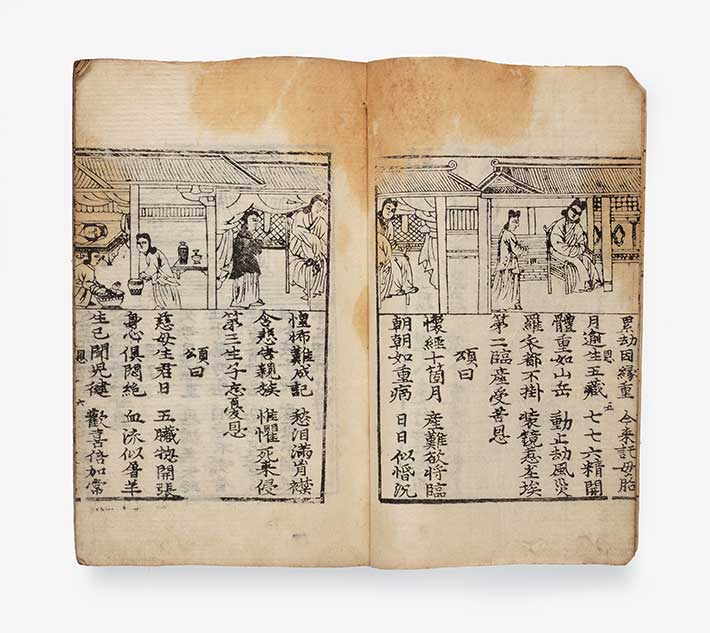 累劫因緣重 今来託母胎
恩 五
月逾生五藏 七七六精開
體重如山岳 動止劫風災
羅衣都不掛 裝鏡惹埃
第二臨産受苦恩
頌曰
懷經十箇月 産難欲將臨
朝朝如重病 日日似惛沉
惶怖難成記 愁泪滿胷襟
含悲告親族 惟懼死来侵
第三生子忘憂恩
頌曰
慈母生君日 五臓揔開張
身心俱悶絶 血流似屠羊
恩 六
生已聞兒健 歡喜倍加常